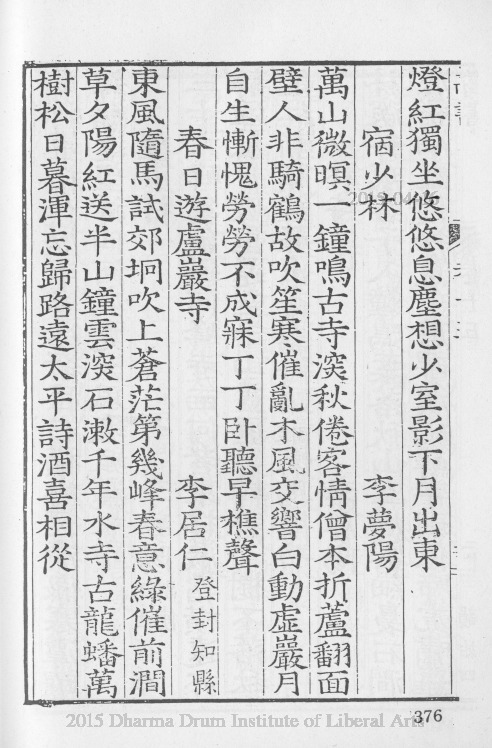 燈紅獨坐悠悠息塵想少室影下月出東
宿少林 李夢陽
萬山微暝一鐘鳴古寺深秋倦客情僧本折蘆翻面
壁人非騎鶴故吹笙寒催亂木風交響白動虛巖月
自生慚愧勞勞不成寐丁丁臥聽早樵聲
春日遊盧巖寺 李居仁 登封知縣
東風隨馬試郊坰吹上蒼茫第幾峰春意綠催前澗
草夕陽紅送半山鐘雲深石漱千年水寺古龍蟠萬
樹松日暮渾忘歸路遠太平詩酒喜相從
376
2015 Dharma Drum Institute of Liberal Arts